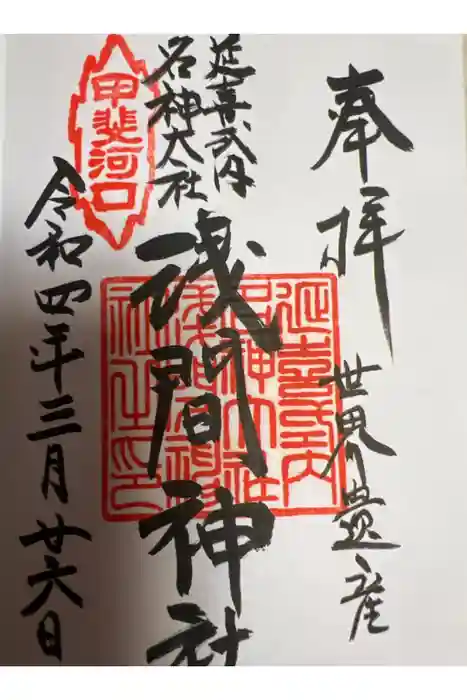 奉拝
世界遺産
延喜式内
名神大社
浅間神社
延喜式内
名神大社
浅間神社
甲斐河口
令和四年三月廿六日